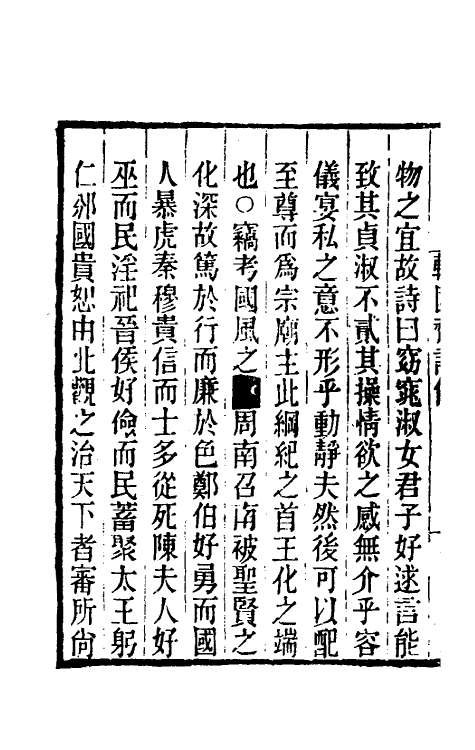 物之宜故詩曰窈窕淑女君子好逑言能
致其貞淑不貳其操情欲之感無介乎容
儀宴私之意不形乎動靜夫然後可以配
至尊而爲宗廟主此綱紀之首王化之端
也○竊考國風之周南召南被聖賢之
化深故篤於行而廉於色鄭伯好勇而國
人暴虎秦穆貴信而士多從死陳夫人好
巫而民淫祀晉侯好儉而民蓄聚太王躬
仁邠國貴恕由此觀之治天下者審所尙